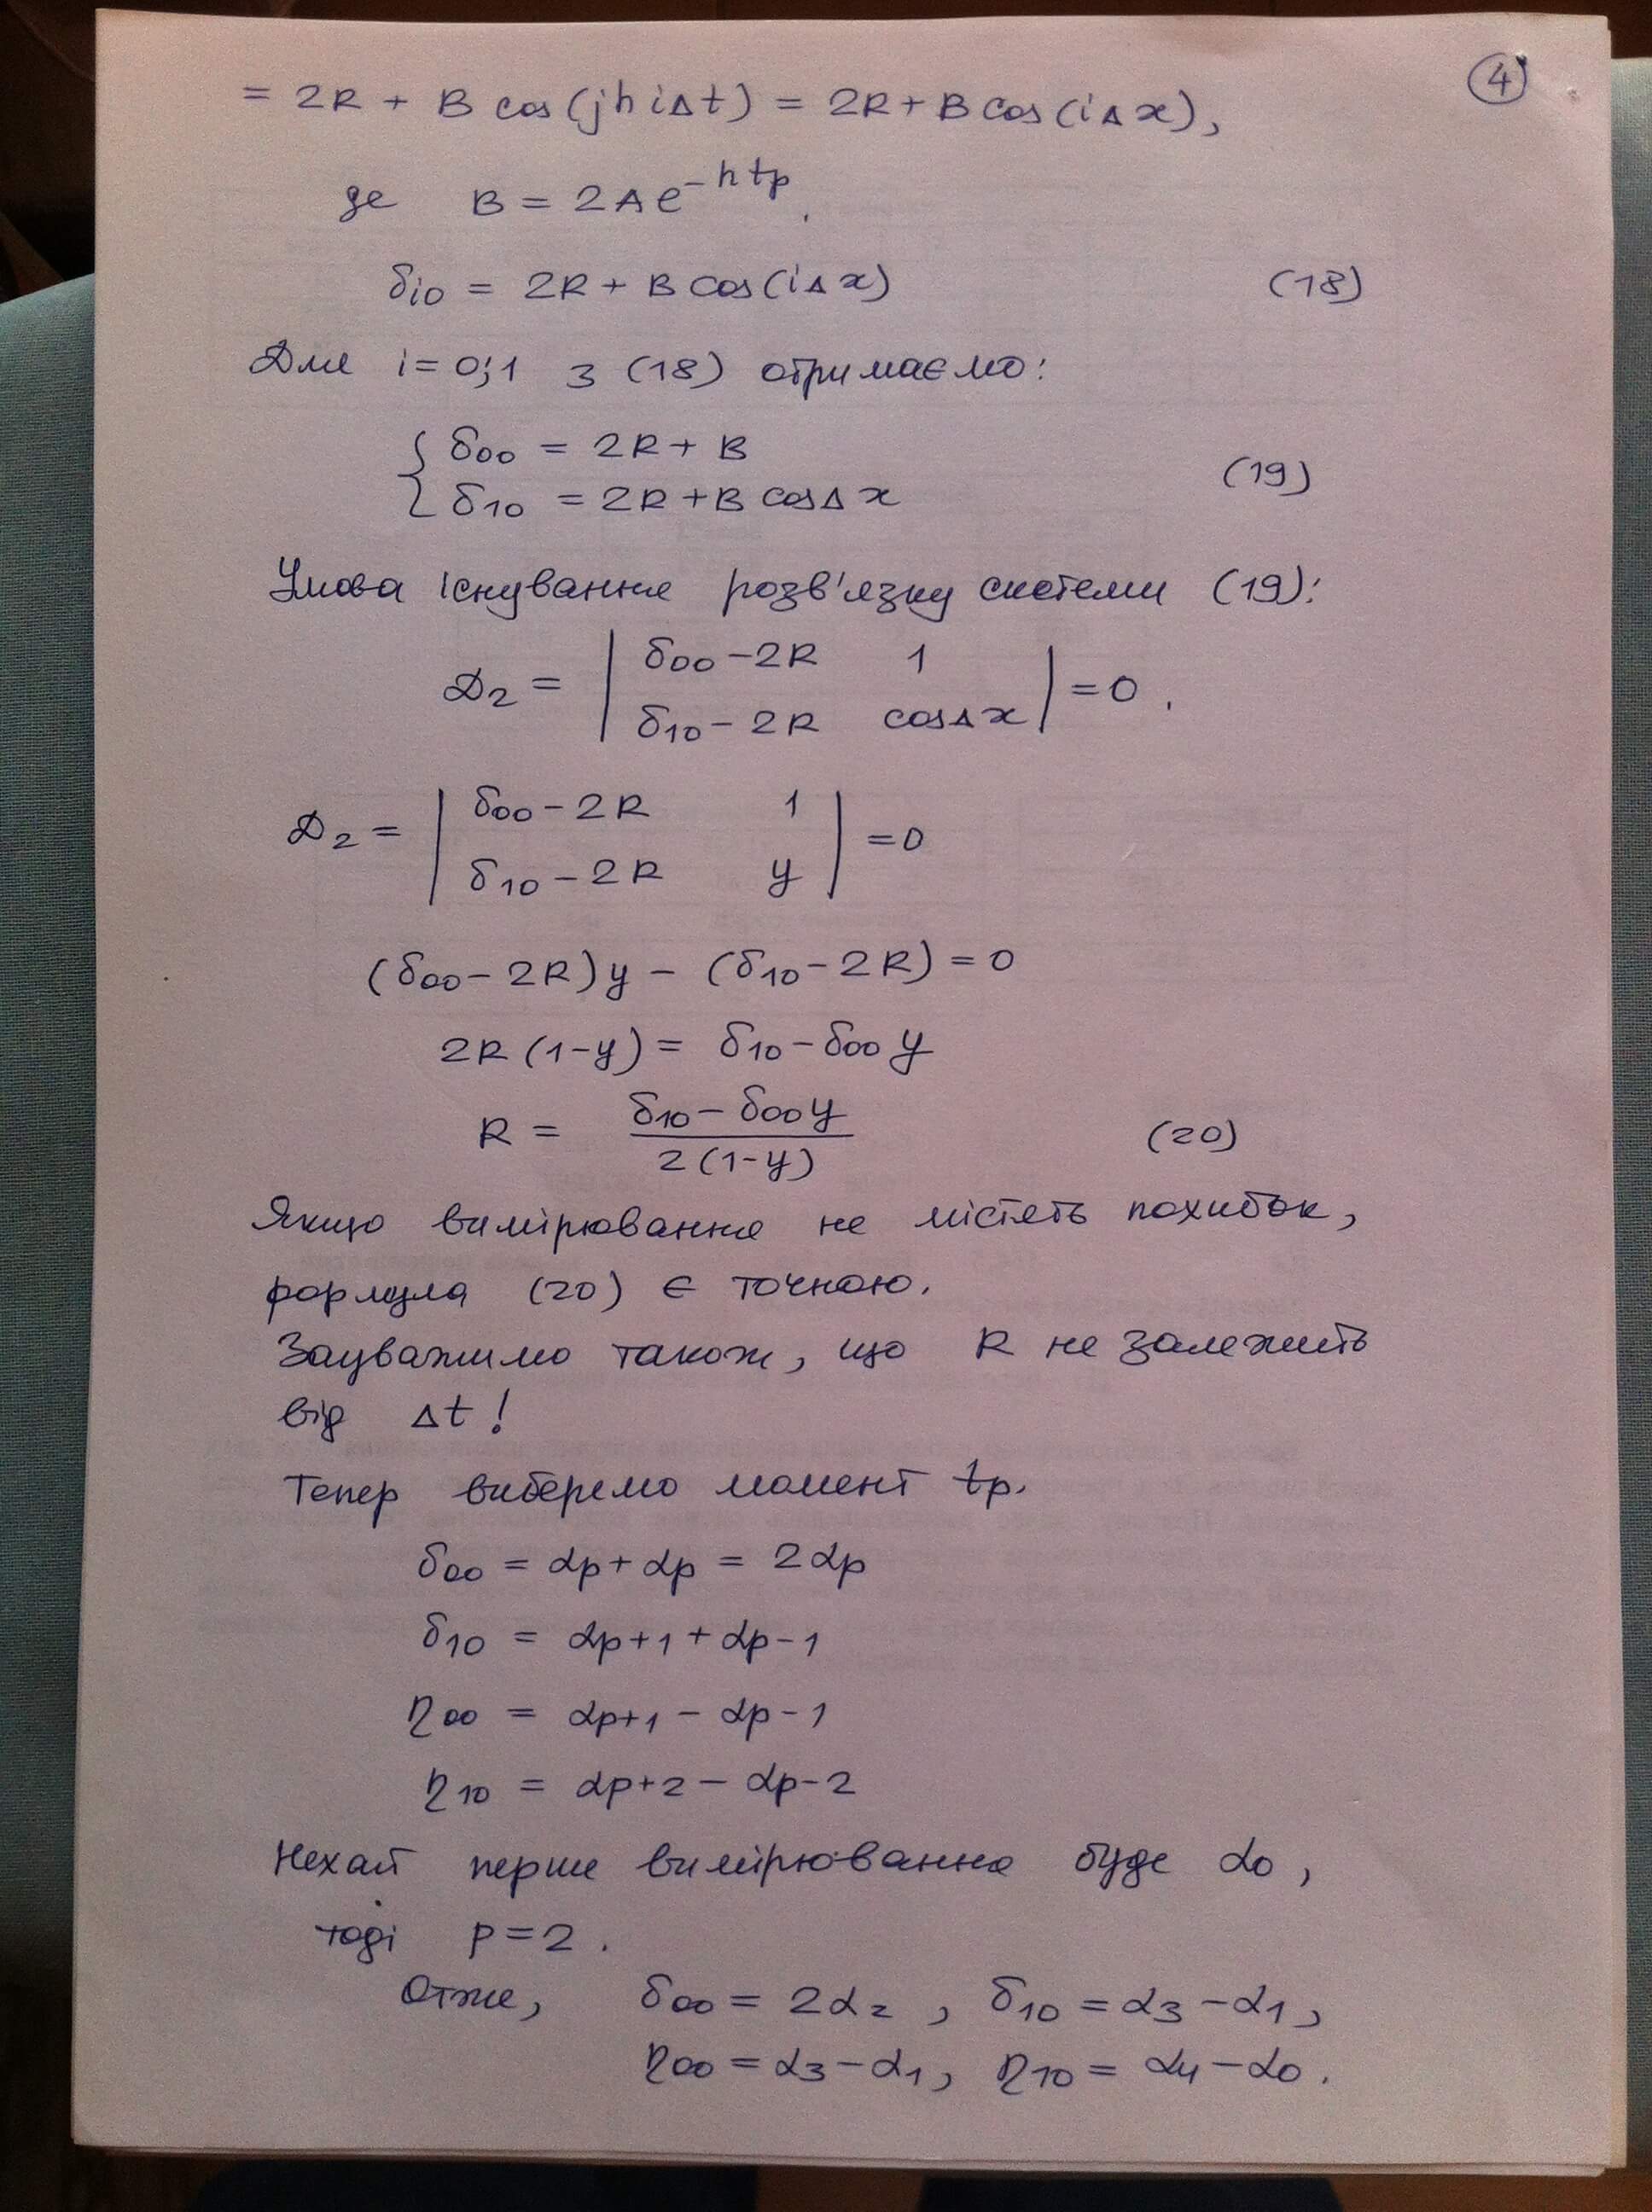 ④
= 2R + B cos(jhiΔt) = 2R + B cos(iΔx),
де B = 2Ae^{-htp}.
δ₁₀ = 2R + B cos(iΔx) (18)
Для i = 0;1 з (18) отримаємо:
{ δ₀₀ = 2R + B
{ δ₁₀ = 2R + B cosΔx (19)
Умова існування розв'язку системи (19):
D₂ = | δ₀₀ - 2R 1 |
| δ₁₀ - 2R cosΔx | = 0.
D₂ = | δ₀₀ - 2R 1 |
| δ₁₀ - 2R y | = 0
(δ₀₀ - 2R)y - (δ₁₀ - 2R) = 0
2R(1-y) = δ₁₀ - δ₀₀y
R = (δ₁₀ - δ₀₀y) / 2(1-y) (20)
Якщо вимірювання не містять похибок,
формула (20) є точною.
Зауважимо також, що R не залежить
від Δt!
Тепер виберемо момент tp.
δ₀₀ = αp + αp = 2αp
δ₁₀ = αp+1 + αp-1
η₀₀ = αp+1 - αp-1
η₁₀ = αp+2 - αp-2
Нехай перше вимірювання буде α₀,
тоді p = 2.
Отже, δ₀₀ = 2α₂, δ₁₀ = α₃ - α₁,
η₀₀ = α₃ - α₁, η₁₀ = α₄ - α₀.